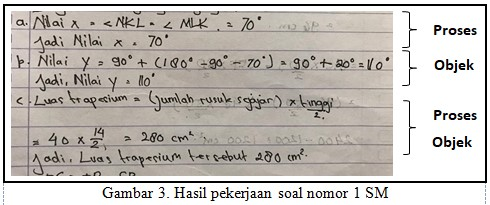 a. Nilai x = < NKL = < MLK = 70°
Jadi Nilai x = 70°
Proses
b. Nilai y = 90° + (180° - 90° - 70°) = 90° + 20° = 110°
Jadi, Nilai y = 110°
Objek
c. Luas trapesium = (jumlah rusuk sejajar) x tinggi/2
= 40 x 14/2 = 280 cm²
Jadi, Luas trapesium tersebut 280 cm².
Proses
Objek
Gambar 3. Hasil pekerjaan soal nomor 1 SM